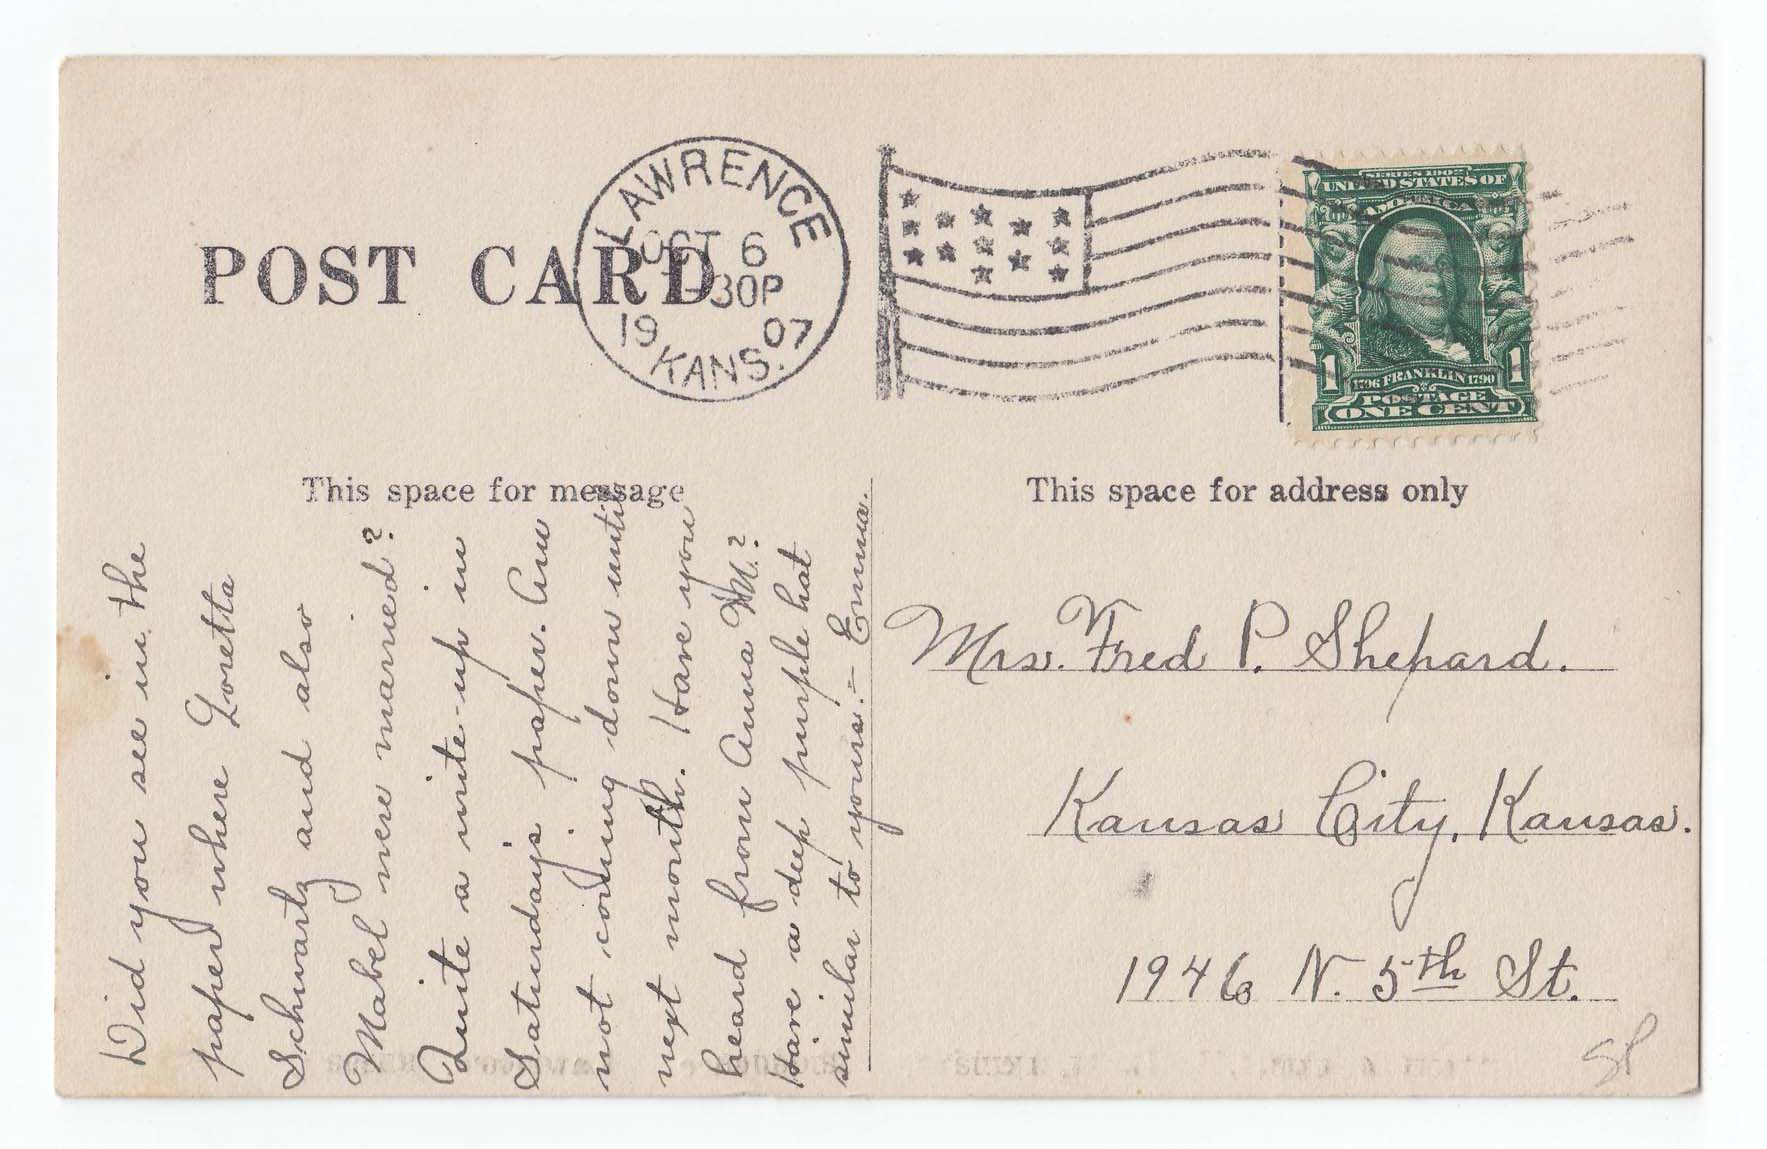 POST CARD
LAWRENCE
OCT 6
30P
19 07
KANS.
SERIES 1902
UNITED STATES OF
AMERICA
1 1
1706 FRANKLIN 1790
POSTAGE
ONE CENT
This space for message
This space for address only
Did you see in the
paper where Loretta
Schwartz and also
Mabel were married?
Quite a write-up in
Saturday's paper. Am
not coming down until
next month. Have you
heard from Anna
Have a deep purple hat
similar to yours.- Emma.
Mrs. Fred P. Shepard.
Kansas City, Kansas.
1946 N. 5th St.